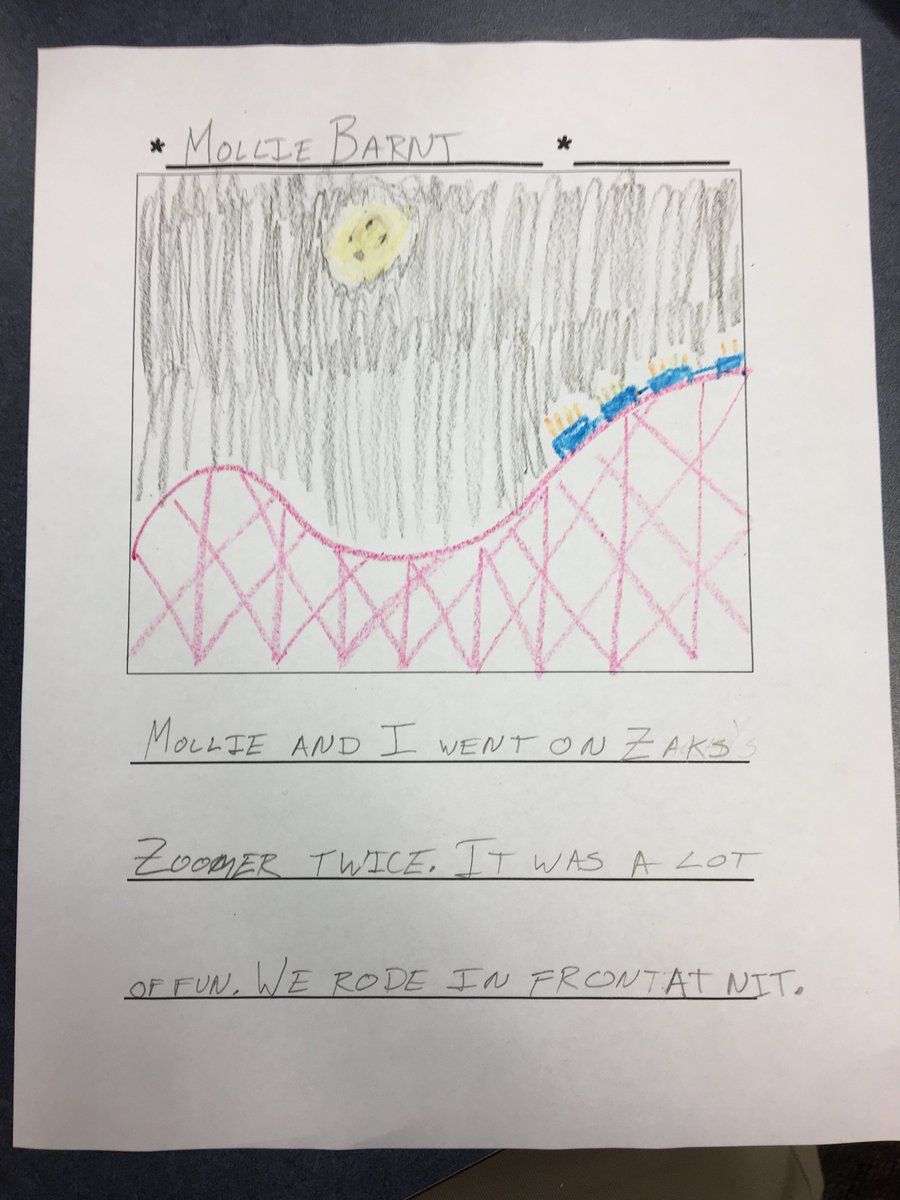 * MOLLIE BARNT *
MOLLIE AND I WENT ON ZAKS
ZOOMER TWICE. IT WAS A LOT
OF FUN. WE RODE IN FRONT AT NIT.